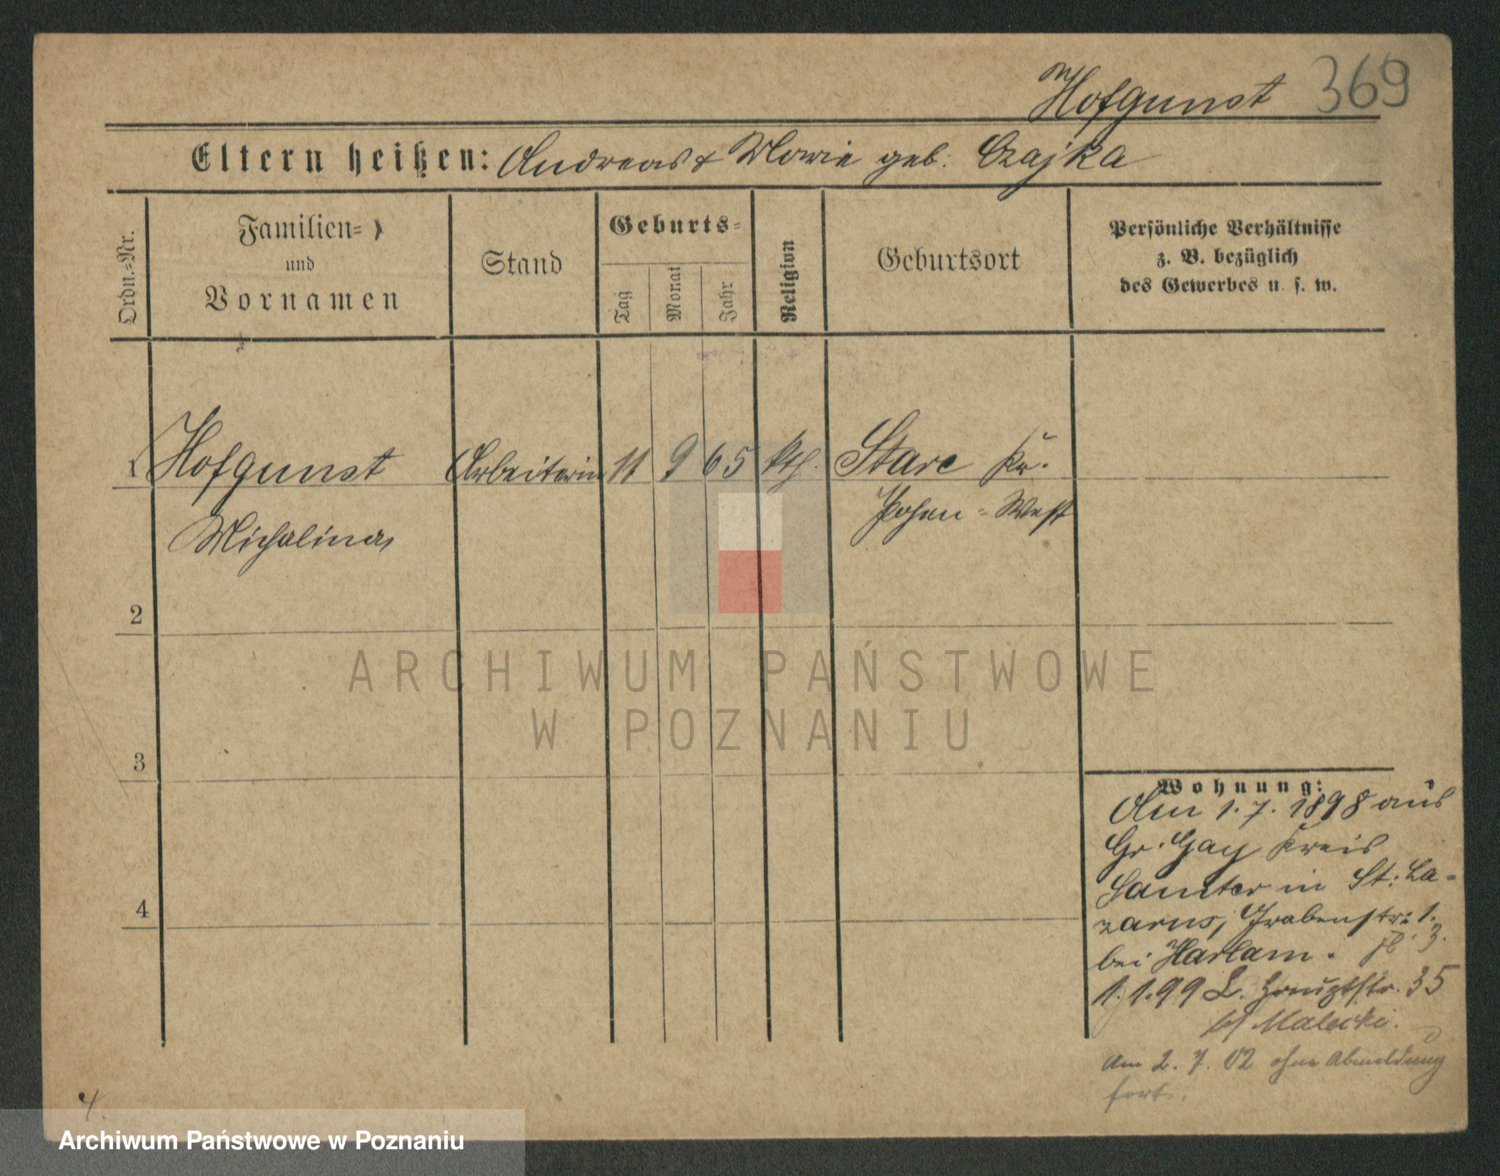 Hofgunst 369
Eltern heißen: Andreas & Marie geb. Czajka
Ordn.=Nr.
Familien=
und
Vornamen
Stand
Geburts=
Tag
Monat
Jahr
Religion
Geburtsort
Persönliche Verhältnisse
z. B. bezüglich
des Gewerbes u. s. w.
1 Hofgunst Arbeiterin 11 9 65 kth. Stare Kr.
Michalina Posen=West
2
3
4
ARCHIWUM PAŃSTWOWE
W POZNANIU
Wohnung:
Am 1.7.1898 aus
Gr. Gay Kreis
Samter in St: La=
zarus, Grabenstr: 1.
bei Harlam. 3.
1.1.99 L. Hauptstr. 35
b/ Malecki.
Am 2.7.02 ohne Abmeldung
fort.
Archiwum Państwowe w Poznaniu